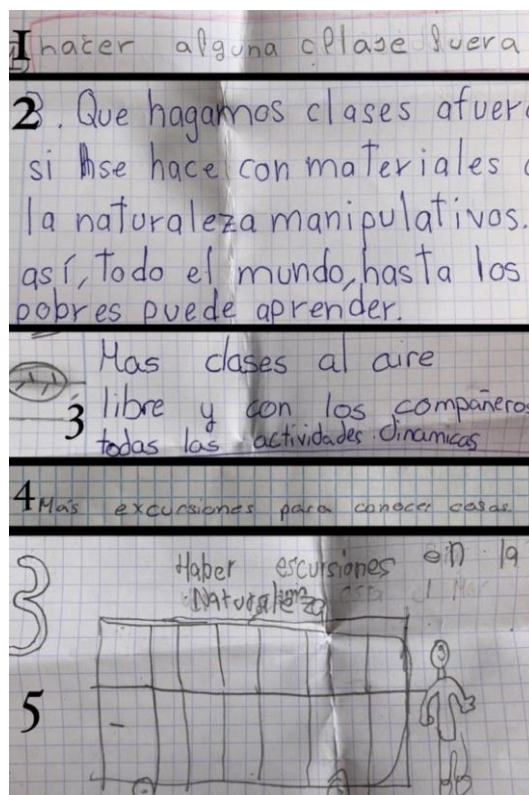 1
hacer alguna cllase fuera
2
3. Que hagamos clases afuer
si se hace con materiales
la naturaleza manipulativos.
así, todo el mundo, hasta los
pobres puede aprender.
Mas clases al aire
3 libre y con los compañeros
todas las actividades dinamicas
4 Más excursiones para conocer cosas
3
Haber escursiones en la
Naturaleza
5